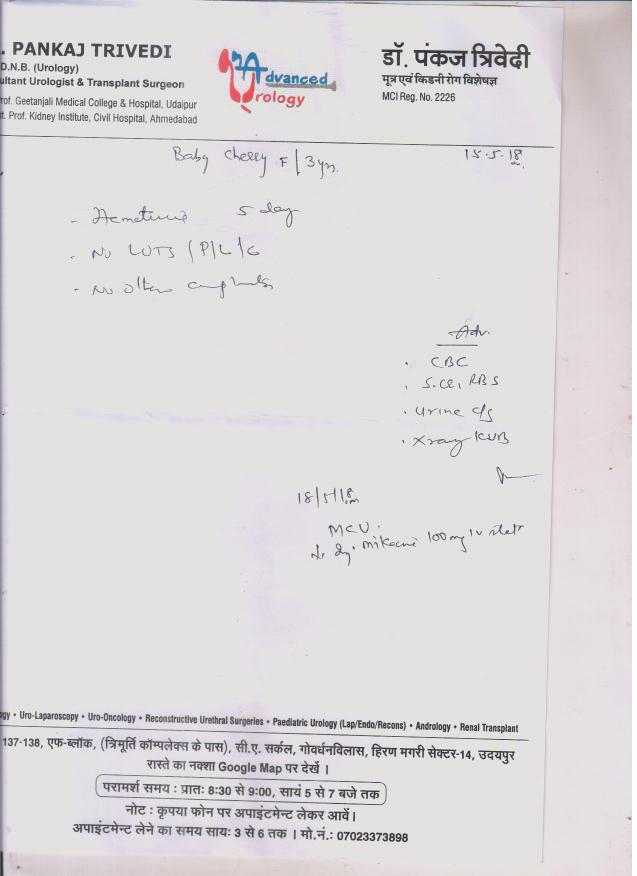 . PANKAJ TRIVEDI
D.N.B. (Urology)
ultant Urologist & Transplant Surgeon
rof. Geetanjali Medical College & Hospital, Udaipur
t. Prof. Kidney Institute, Civil Hospital, Ahmedabad
Advanced
Urology
डॉ. पंकज त्रिवेदी
मूत्र एवं किडनी रोग विशेषज्ञ
MCI Reg. No. 2226
Baby Cherry F/3yrs.
15.5.18
- Hematuria 5 day
- No LUTS (P/L/G
- No other complaints
Adv.
. CBC
. S.Cr, RBS
. Urine c/s
. Xray KUB
18/5/18
MCU.
Inj. Mikacin 100mg IV stat
gy • Uro-Laparoscopy • Uro-Oncology • Reconstructive Urethral Surgeries • Paediatric Urology (Lap/Endo/Recons) • Andrology • Renal Transplant
137-138, एफ-ब्लॉक, (त्रिमूर्ति कॉम्पलेक्स के पास), सी.ए. सर्कल, गोवर्धनविलास, हिरण मगरी सेक्टर-14, उदयपुर
रास्ते का नक्शा Google Map पर देखें ।
परामर्श समय : प्रातः 8:30 से 9:00, सायं 5 से 7 बजे तक
नोट : कृपया फोन पर अपाइंटमेन्ट लेकर आवें।
अपाइंटमेन्ट लेने का समय सायः 3 से 6 तक । मो.नं.: 07023373898